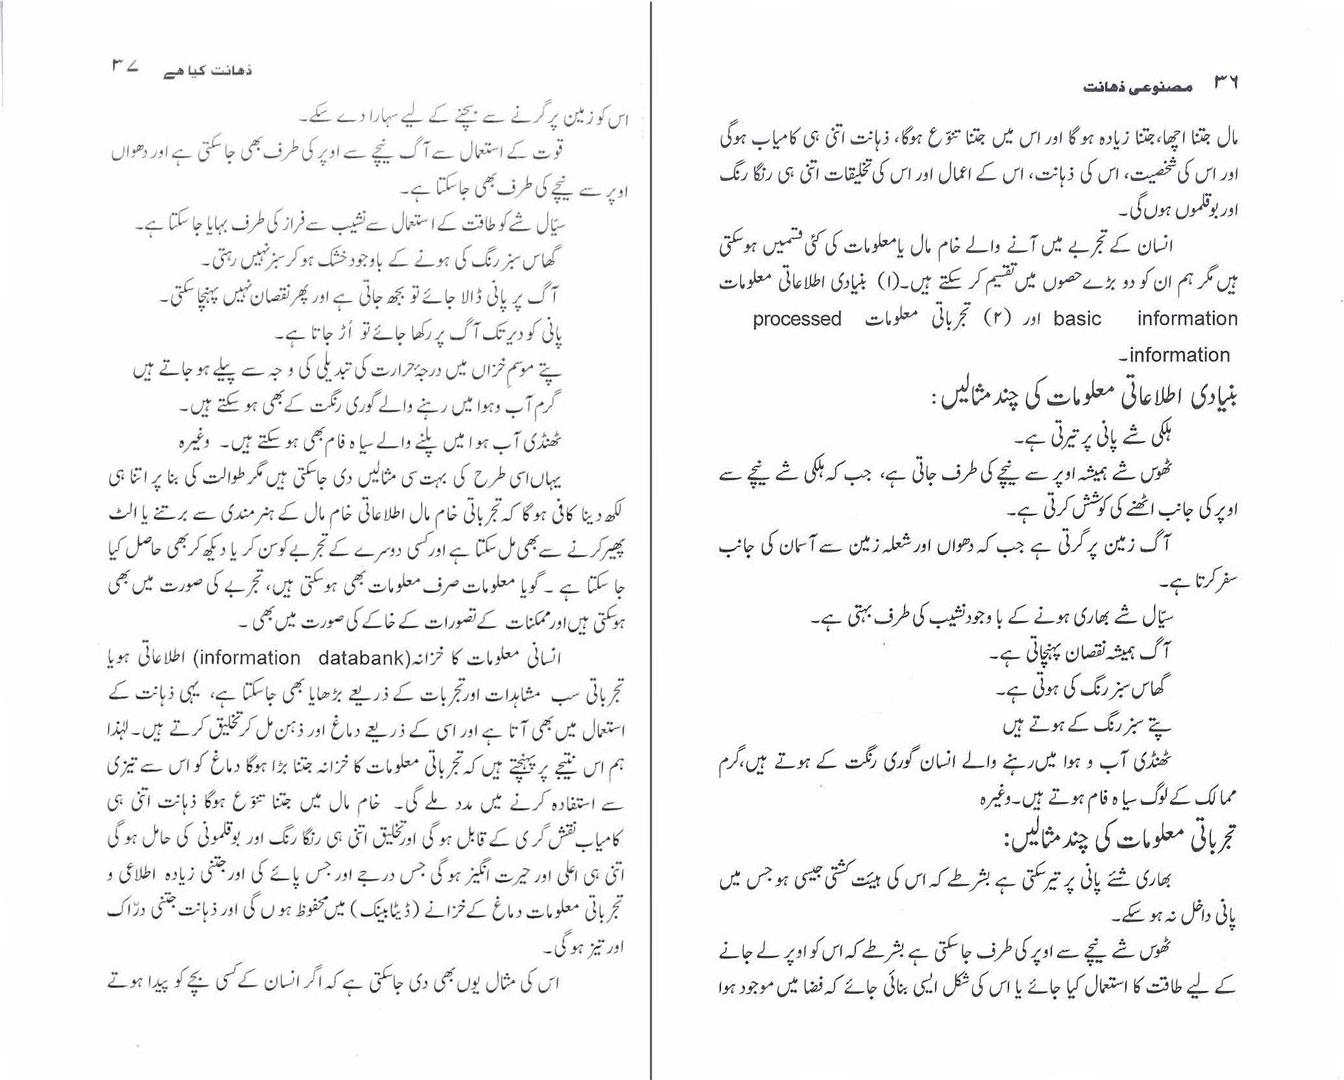 ۳۶ مصنوعی ذهانت
مال جتنا اچھا، جتنا زیادہ ہو گا اور اس میں جتنا تنوّع ہوگا، ذہانت اتنی ہی کامیاب ہوگی
اور اس کی شخصیت، اس کی ذہانت، اس کے اعمال اور اس کی تخلیقات اتنی ہی رنگا رنگ
اور بوقلموں ہوں گی۔
انسان کے تجربے میں آنے والے خام مال یا معلومات کی کئی قسمیں ہوسکتی
ہیں مگر ہم ان کو دو بڑے حصوں میں تقسیم کر سکتے ہیں۔(۱) بنیادی اطلاعاتی معلومات
basic information اور (۲) تجرباتی معلومات processed
information۔
بنیادی اطلاعاتی معلومات کی چند مثالیں:
ہلکی شے پانی پر تیرتی ہے۔
ٹھوس شے ہمیشہ اوپر سے نیچے کی طرف جاتی ہے، جب کہ ہلکی شے نیچے سے
اوپر کی جانب اٹھنے کی کوشش کرتی ہے۔
آگ زمین پر گرتی ہے جب کہ دھواں اور شعلہ زمین سے آسمان کی جانب
سفر کرتا ہے۔
سیّال شے بھاری ہونے کے باوجود نشیب کی طرف بہتی ہے۔
آگ ہمیشہ نقصان پہنچاتی ہے۔
گھاس سبز رنگ کی ہوتی ہے۔
پتے سبز رنگ کے ہوتے ہیں
ٹھنڈی آب و ہوا میں رہنے والے انسان گوری رنگت کے ہوتے ہیں، گرم
ممالک کے لوگ سیاہ فام ہوتے ہیں۔وغیرہ
تجرباتی معلومات کی چند مثالیں:
بھاری شئے پانی پر تیر سکتی ہے بشرطے کہ اس کی ہیئت کشتی جیسی ہو جس میں
پانی داخل نہ ہو سکے۔
ٹھوس شے نیچے سے اوپر کی طرف جا سکتی ہے بشرطے کہ اس کو اوپر لے جانے
کے لیے طاقت کا استعمال کیا جائے یا اس کی شکل ایسی بنائی جائے کہ فضا میں موجود ہوا
ذهانت کیا هے ۳۷
اس کو زمین پر گرنے سے بچنے کے لیے سہارا دے سکے۔
قوت کے استعمال سے آگ نیچے سے اوپر کی طرف بھی جاسکتی ہے اور دھواں
اوپر سے نیچے کی طرف بھی جاسکتا ہے۔
سیّال شے کو طاقت کے استعمال سے نشیب سے فراز کی طرف بہایا جاسکتا ہے۔
گھاس سبز رنگ کی ہونے کے باوجود خشک ہو کر سبز نہیں رہتی۔
آگ پر پانی ڈالا جائے تو بجھ جاتی ہے اور پھر نقصان نہیں پہنچاسکتی۔
پانی کو دیر تک آگ پر رکھا جائے تو اُڑ جاتا ہے۔
پتے موسمِ خزاں میں درجۂ حرارت کی تبدیلی کی وجہ سے پیلے ہو جاتے ہیں
گرم آب وہوا میں رہنے والے گوری رنگت کے بھی ہو سکتے ہیں۔
ٹھنڈی آب ہوا میں پلنے والے سیاہ فام بھی ہو سکتے ہیں۔ وغیرہ
یہاں اسی طرح کی بہت سی مثالیں دی جاسکتی ہیں مگر طوالت کی بنا پر اتنا ہی
لکھ دینا کافی ہوگا کہ تجرباتی خام مال اطلاعاتی خام مال کے ہنرمندی سے برتنے یا الٹ
پھیر کرنے سے بھی مل سکتا ہے اور کسی دوسرے کے تجربے کو سن کر یا دیکھ کر بھی حاصل کیا
جا سکتا ہے۔ گویا معلومات صرف معلومات بھی ہوسکتی ہیں، تجربے کی صورت میں بھی
ہوسکتی ہیں اور ممکنات کے تصورات کے خاکے کی صورت میں بھی۔
انسانی معلومات کا خزانہ(information databank) اطلاعاتی ہو یا
تجرباتی سب مشاہدات اور تجربات کے ذریعے بڑھایا بھی جاسکتا ہے، یہی ذہانت کے
استعمال میں بھی آتا ہے اور اسی کے ذریعے دماغ اور ذہن مل کر تخلیق کرتے ہیں۔ لہٰذا
ہم اس نتیجے پر پہنچتے ہیں کہ تجرباتی معلومات کا خزانہ جتنا بڑا ہوگا دماغ کو اس سے تیزی
سے استفادہ کرنے میں مدد ملے گی۔ خام مال میں جتنا تنوّع ہوگا ذہانت اتنی ہی
کامیاب نقش گری کے قابل ہوگی اور تخلیق اتنی ہی رنگا رنگ اور بوقلمونی کی حامل ہوگی
اتنی ہی اعلیٰ اور حیرت انگیز ہوگی جس درجے اور جس پائے کی اور جتنی زیادہ اطلاعی و
تجرباتی معلومات دماغ کے خزانے (ڈیٹابینک) میں محفوظ ہوں گی اور ذہانت جتنی درّاک
اور تیز ہوگی۔
اس کی مثال یوں بھی دی جاسکتی ہے کہ اگر انسان کے کسی بچے کو پیدا ہوتے